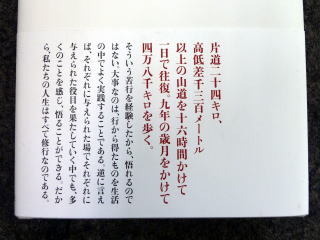 片道二十四キロ、
高低差千三百メートル
以上の山道を十六時間かけて
一日で往復。九年の歳月をかけて
四万八千キロを歩く。
そういう苦行を経験したから、悟れるので
はない。大事なのは、行から得たものを生活
の中でよく実践することである。逆に言え
ば、それぞれに与えられた場でそれぞれに
与えられた役目を果たしていく中でも、多
くのことを感じ、悟ることができる。だか
ら、私たちの人生はすべて修行なのである。